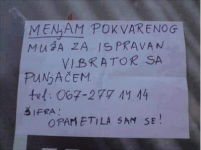 MENJAM POKVARENOG
MUŽA ZA ISPRAVAN
VIBRATOR SA
PUNJAČEM
tel: 067-277 14 14
ŠIFRA:
OPAMETILA SAM SE!